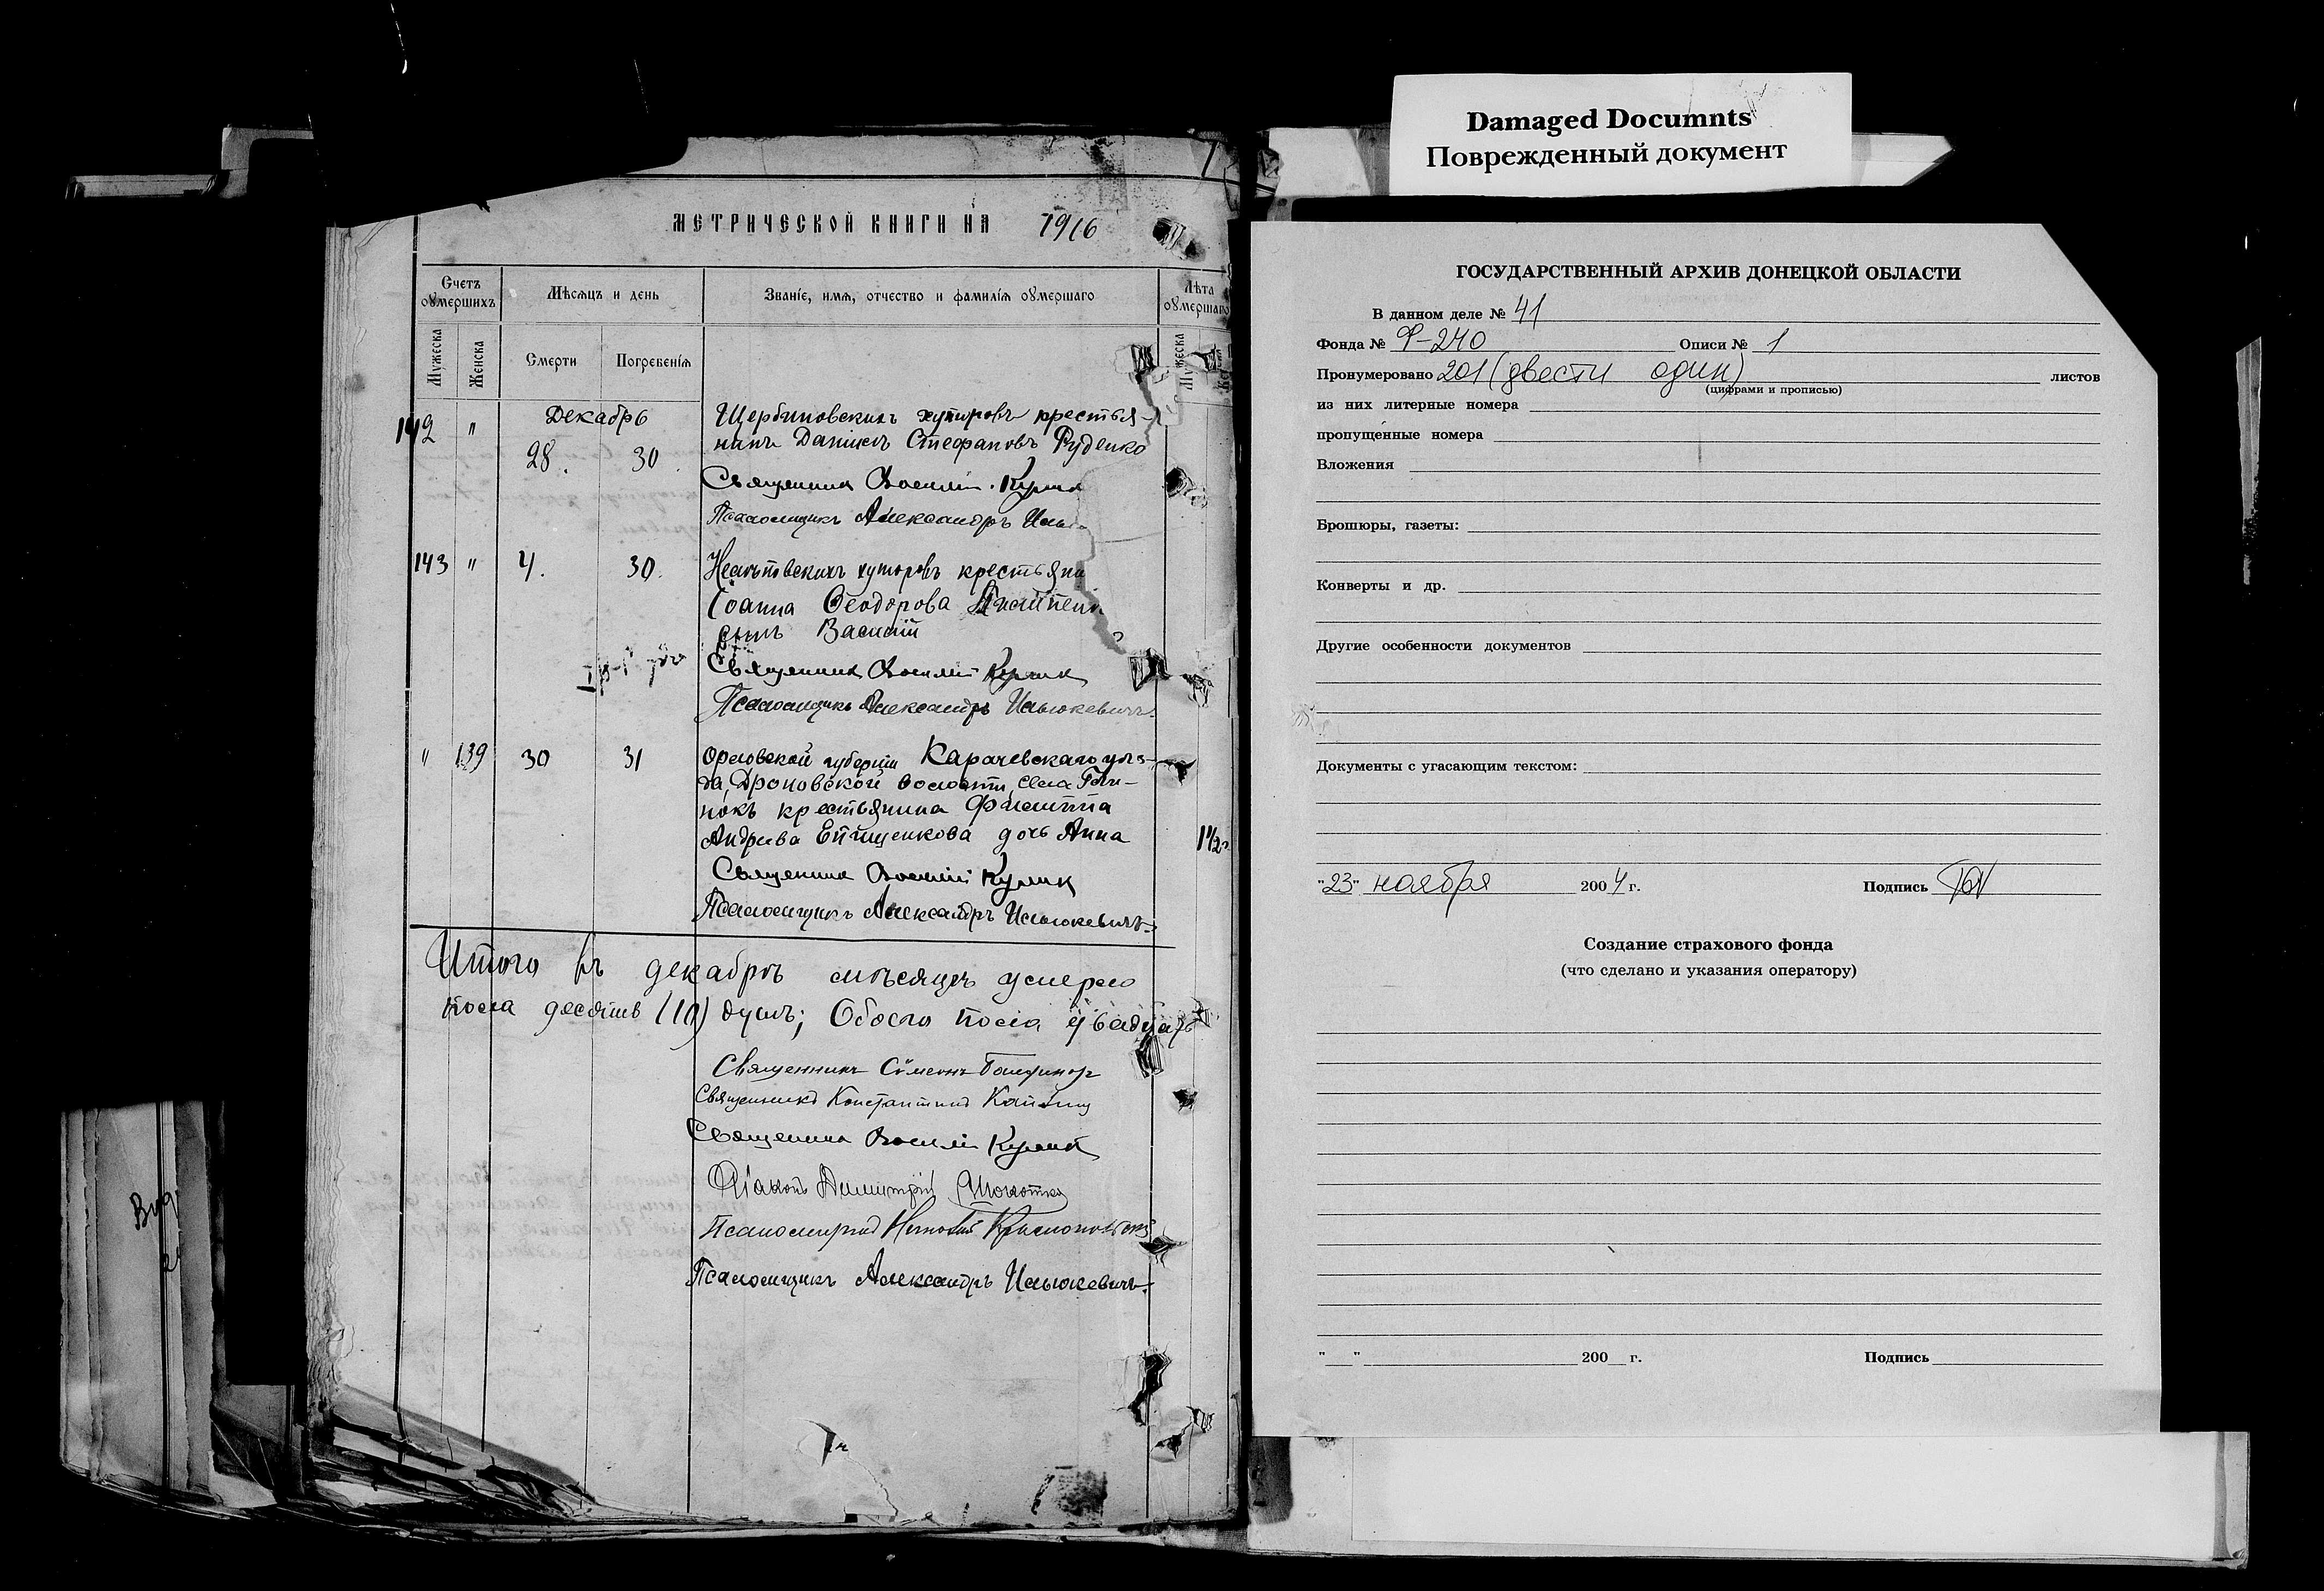 Damaged Documnts
Поврежденный документ
МЕТРИЧЕСКОЙ КНИГИ НА 1916
Счетъ оумершихъ
Мѣсяцъ и день
Званіе, имя, отчество и фамилія оумершаго
Лѣта оумершаго
Мужеска
Женска
Смерти
Погребенія
Мужеска
142 " Декабрь
28. 30.
Щербиновскихъ хуторовъ крестья-
нинъ Даніилъ Стефановъ Руденко
Священникъ Василій Кулик
Псаломщикъ Александръ Илью
143 " 4. 30.
Нелѣповскихъ хуторовъ крестьяни
Іоанна Ѳеодорова
сынъ Василій
Священникъ Василій Куликъ
Псаломщикъ Александръ Ильюкевичъ.
" 139 30 31
Орловской губерніи Карачевскаго уѣз-
да, Дроновской волости, села
крестьянина Филиппа
Андреева Епищенкова дочь Анна
1 1/2 г.
Священникъ Василій Куликъ
Псаломщикъ Александръ Ильюкевичъ.
Итого въ декабрѣ мѣсяцѣ умерло
пола десять (10) душъ; Обоего пола двадцать
Священникъ Сѵмеонъ
Священникъ Константинъ
Священникъ Василій Куликъ
Діаконъ Димитрій
Псаломщикъ
Псаломщикъ Александръ Ильюкевичъ.
ГОСУДАРСТВЕННЫЙ АРХИВ ДОНЕЦКОЙ ОБЛАСТИ
В данном деле № 41
Фонда № Ф-240 Описи № 1
Пронумеровано 201 (двести один) листов
(цифрами и прописью)
из них литерные номера
пропущенные номера
Вложения
Брошюры, газеты:
Конверты и др.
Другие особенности документов
Документы с угасающим текстом:
"23" ноября 2004 г. Подпись
Создание страхового фонда
(что сделано и указания оператору)
"__" 200__ г. Подпись